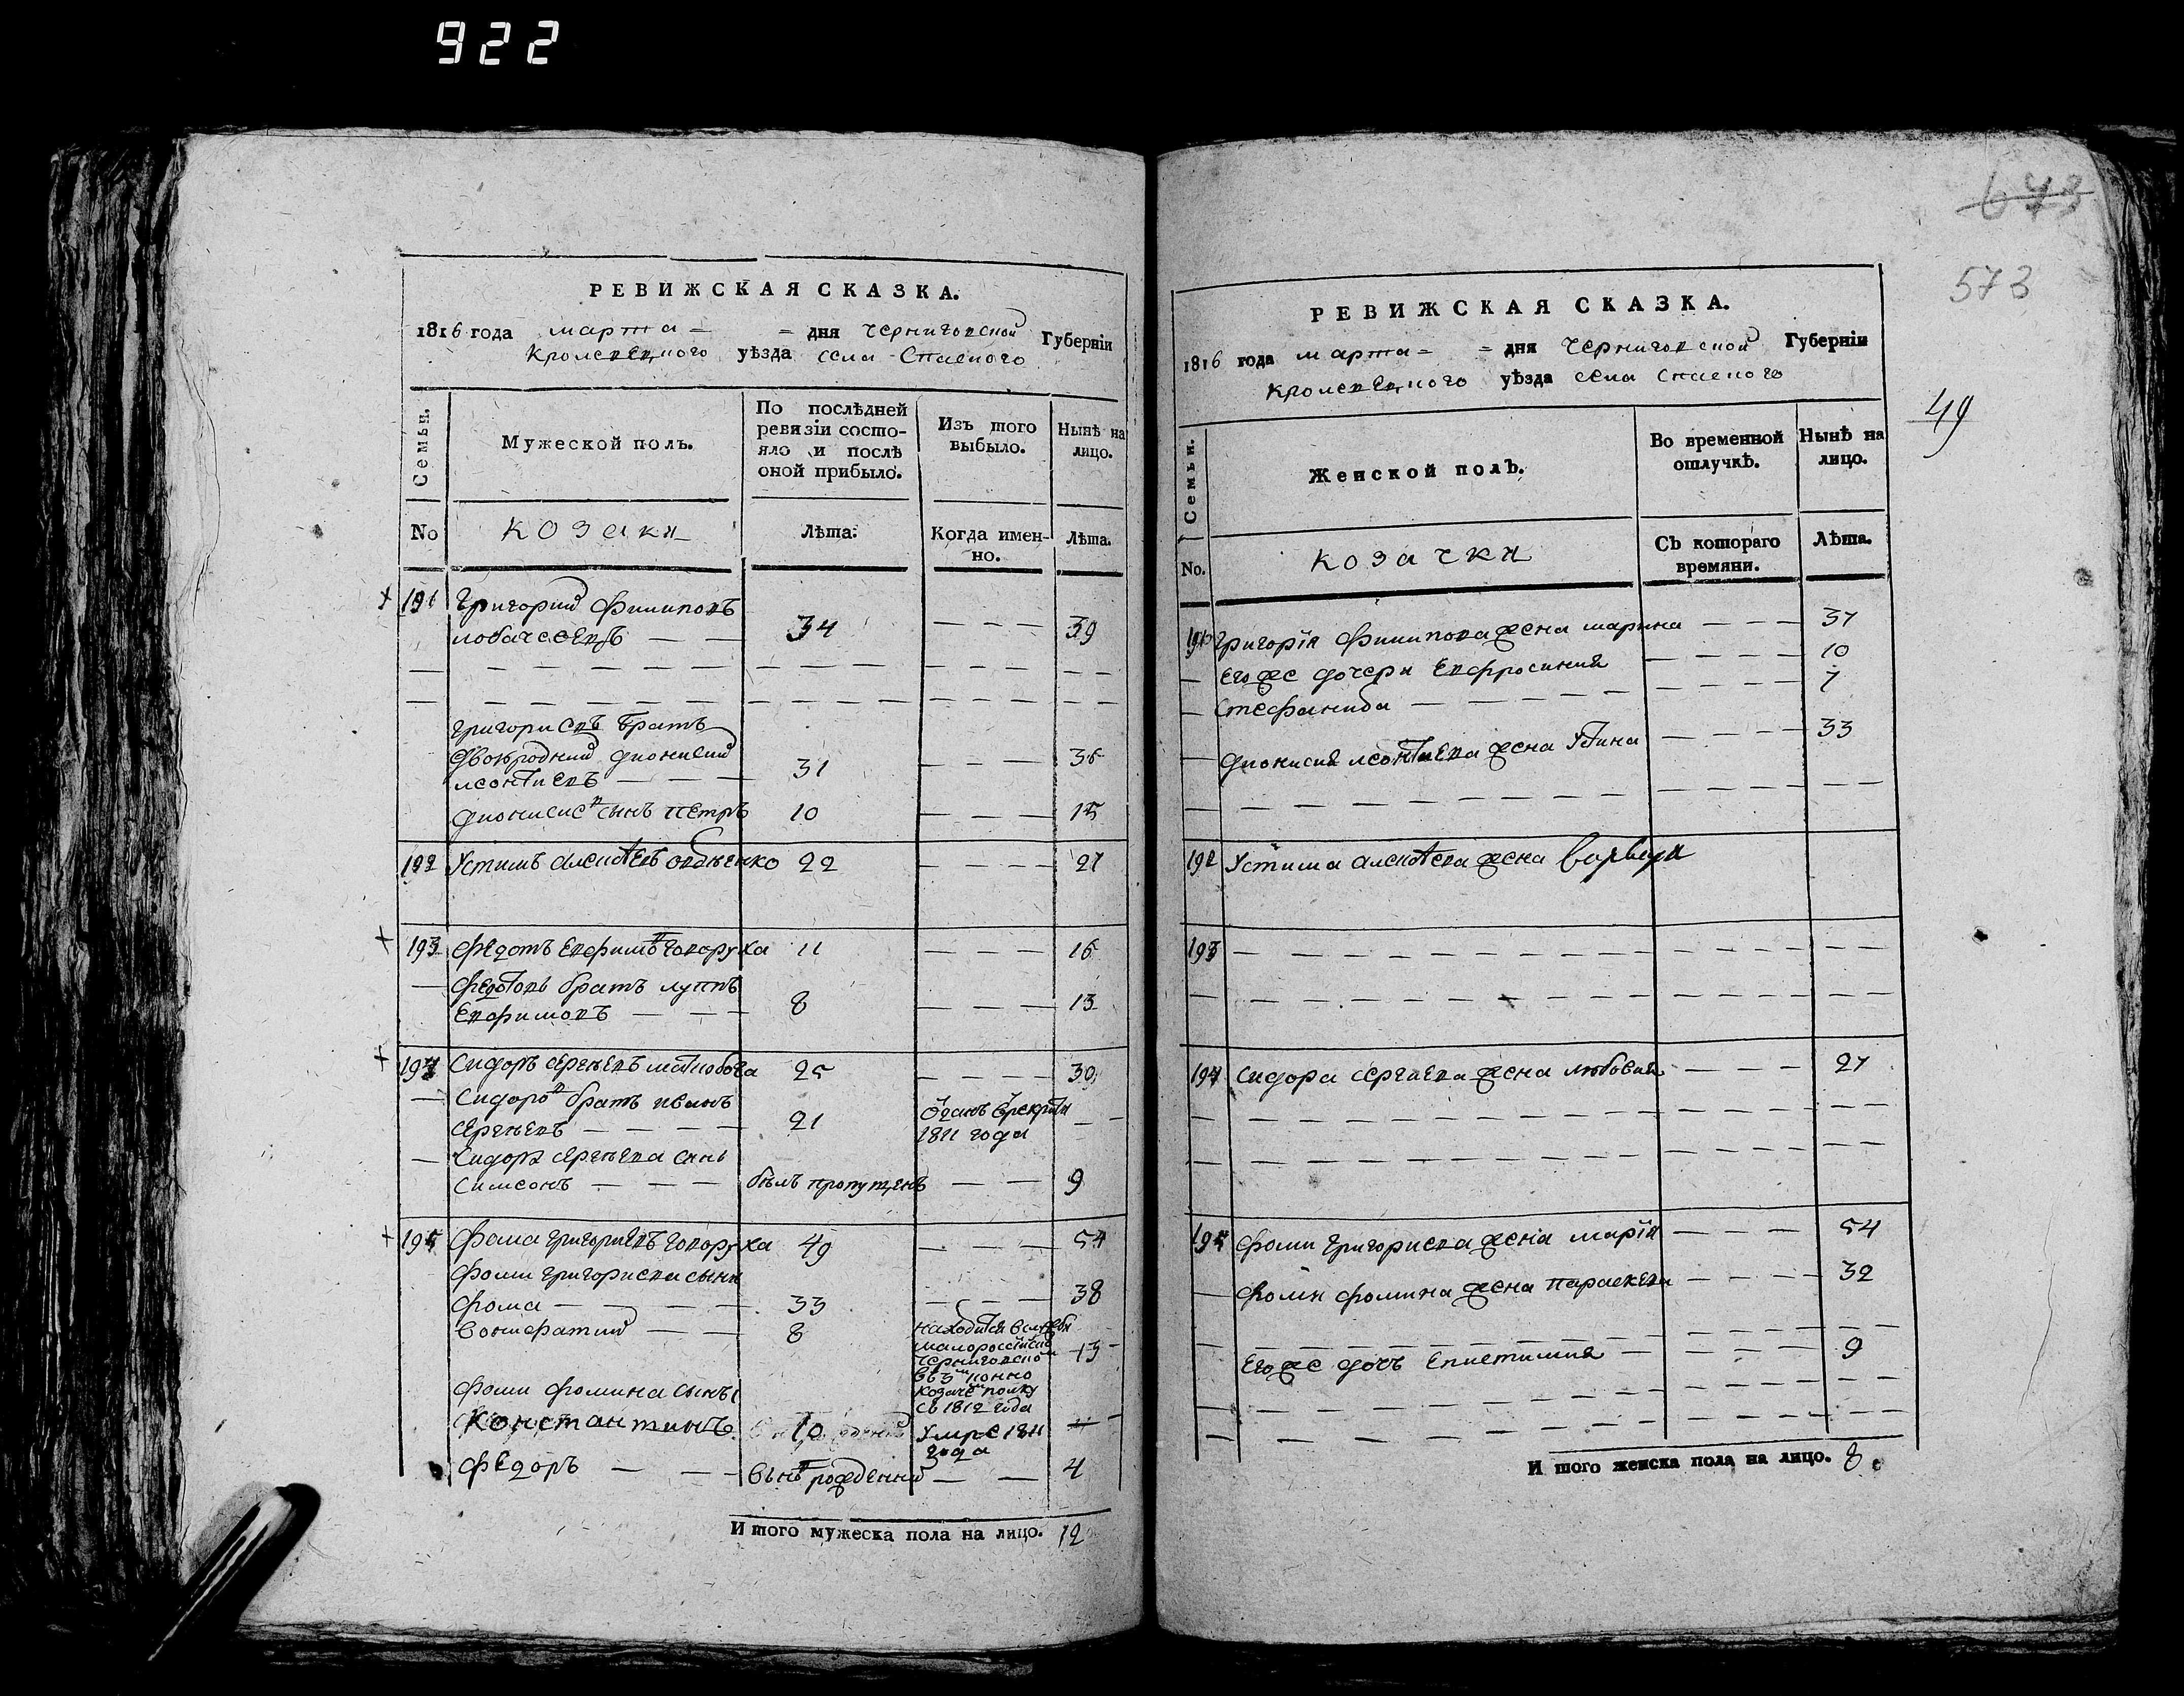 922
РЕВИЖСКАЯ СКАЗКА.
1816 года марта = = дня Черниговской Губерніи
Кролевецкого уѣзда села Спаского
Семьи.
Мужеской полъ.
По послѣдней ревизіи состояло и послѣ оной прибыло.
Изъ того выбыло.
Нынѣ на лицо.
No
козаки
Лѣта.
Когда именно.
Лѣта.
191 Григорий Филиповъ
34 — — — 39
Григориевъ братъ
двоюродний Дионисий
Леонтиевъ — — — 31 — — — 36
Дионисиевъ сынъ Петръ 10 — — — 15
192 Устимъ Алексѣевъ 22 — — — 27
193 Федотъ Евфимовъ Говоруха 11 — — — 16
— Федотовъ братъ Луппъ
Евфимовъ — — — 8 — — — 13
194 Сидоръ Сергѣевъ 25 — — — 30
— Сидоровъ братъ Иванъ
Сергѣевъ — — — — 21
отданъ в рекруты
1811 года — —
— Сидора Сергѣева сынъ
Симеонъ — — — былъ пропущенъ — — 9
195 Фома Григориевъ Говоруха 49 — — — 54
Фоми Григориева сыни
Фома — — — — 33 — — — 38
Вонифатий — — 8
находится в службе
малороссийско
Черниговско
въ 3м конно
козаче полку
съ 1812 года
13
Фоми Фомина сыны
Константинъ 10
умре 1811
года
Федоръ — — — вънове рожденний — — 4
Итого мужеска пола на лицо. 12
673
573
49
РЕВИЖСКАЯ СКАЗКА.
1816 года марта = = дня Черниговской Губерніи
Кролевецкого уѣзда села Спаского
Семьи.
Женской полъ.
Во временной отлучкѣ.
Нынѣ на лицо.
No.
козачки
Съ котораго времяни.
Лѣта.
191 Григорія Филипова жена Марина — — — 37
— Его же дочери Евфросиния — — — — 10
— Стефанида — — — — — 7
— Дионисия Леонтиева жена — — — — 33
192 Устима Алексѣева жена Варвара
193 — — — — — —
194 Сидора Сергиева жена Любовия — — — 27
195 Фоми Григориева жена Марія — — — 54
— Фоми Фомина жена Параскева — — — — 32
Его же дочь Епистимия — — — — 9
Итого женска пола на лицо. 8